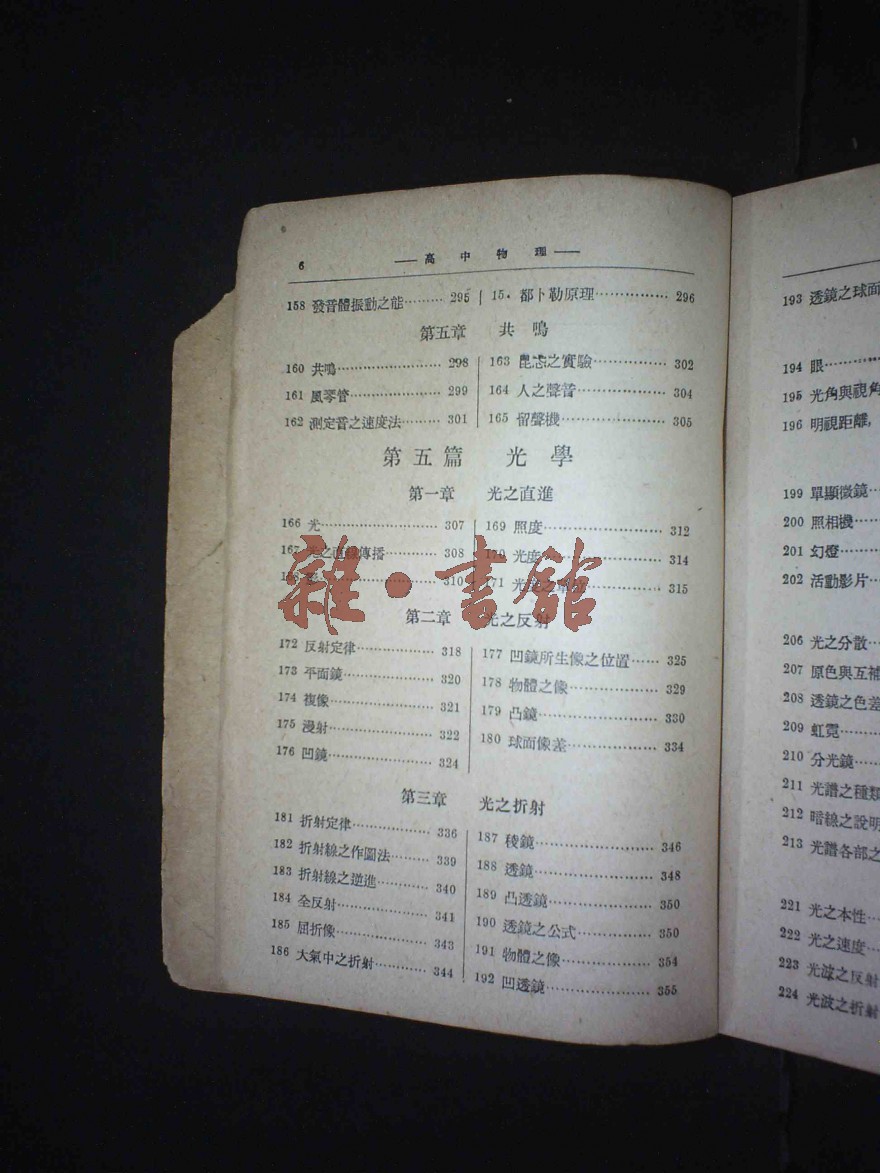 6
高中物理
158 發音體振動之能 295
15 都卜勒原理 296
第五章 共鳴
160 共鳴 298
161 風琴管 299
162 測定音之速度法 301
163 昆忒之實驗 302
164 人之聲音 304
165 留聲機 305
第五篇 光學
第一章 光之直進
166 光 307
167 光之直線傳播 308
168 310
169 照度 312
170 光度 314
171 光度之單位 315
第二章 光之反射
172 反射定律 318
173 平面鏡 320
174 複像 321
175 漫射 322
176 凹鏡 324
177 凹鏡所生像之位置 325
178 物體之像 329
179 凸鏡 330
180 球面像差 334
第三章 光之折射
181 折射定律 336
182 折射線之作圖法 339
183 折射線之逆進 340
184 全反射 341
185 屈折像 343
186 大氣中之折射 344
187 稜鏡 346
188 透鏡 348
189 凸透鏡 350
190 透鏡之公式 350
191 物體之像 354
192 凹透鏡 355
雜·書館
193 透鏡之球面
194 眼
195 光角與視角
196 明視距離,
199 單顯微鏡
200 照相機
201 幻燈
202 活動影片
206 光之分散
207 原色與互補
208 透鏡之色差
209 虹霓
210 分光鏡
211 光譜之種類
212 暗線之說明
213 光譜各部之
221 光之本性
222 光之速度
223 光波之反射
224 光波之折射